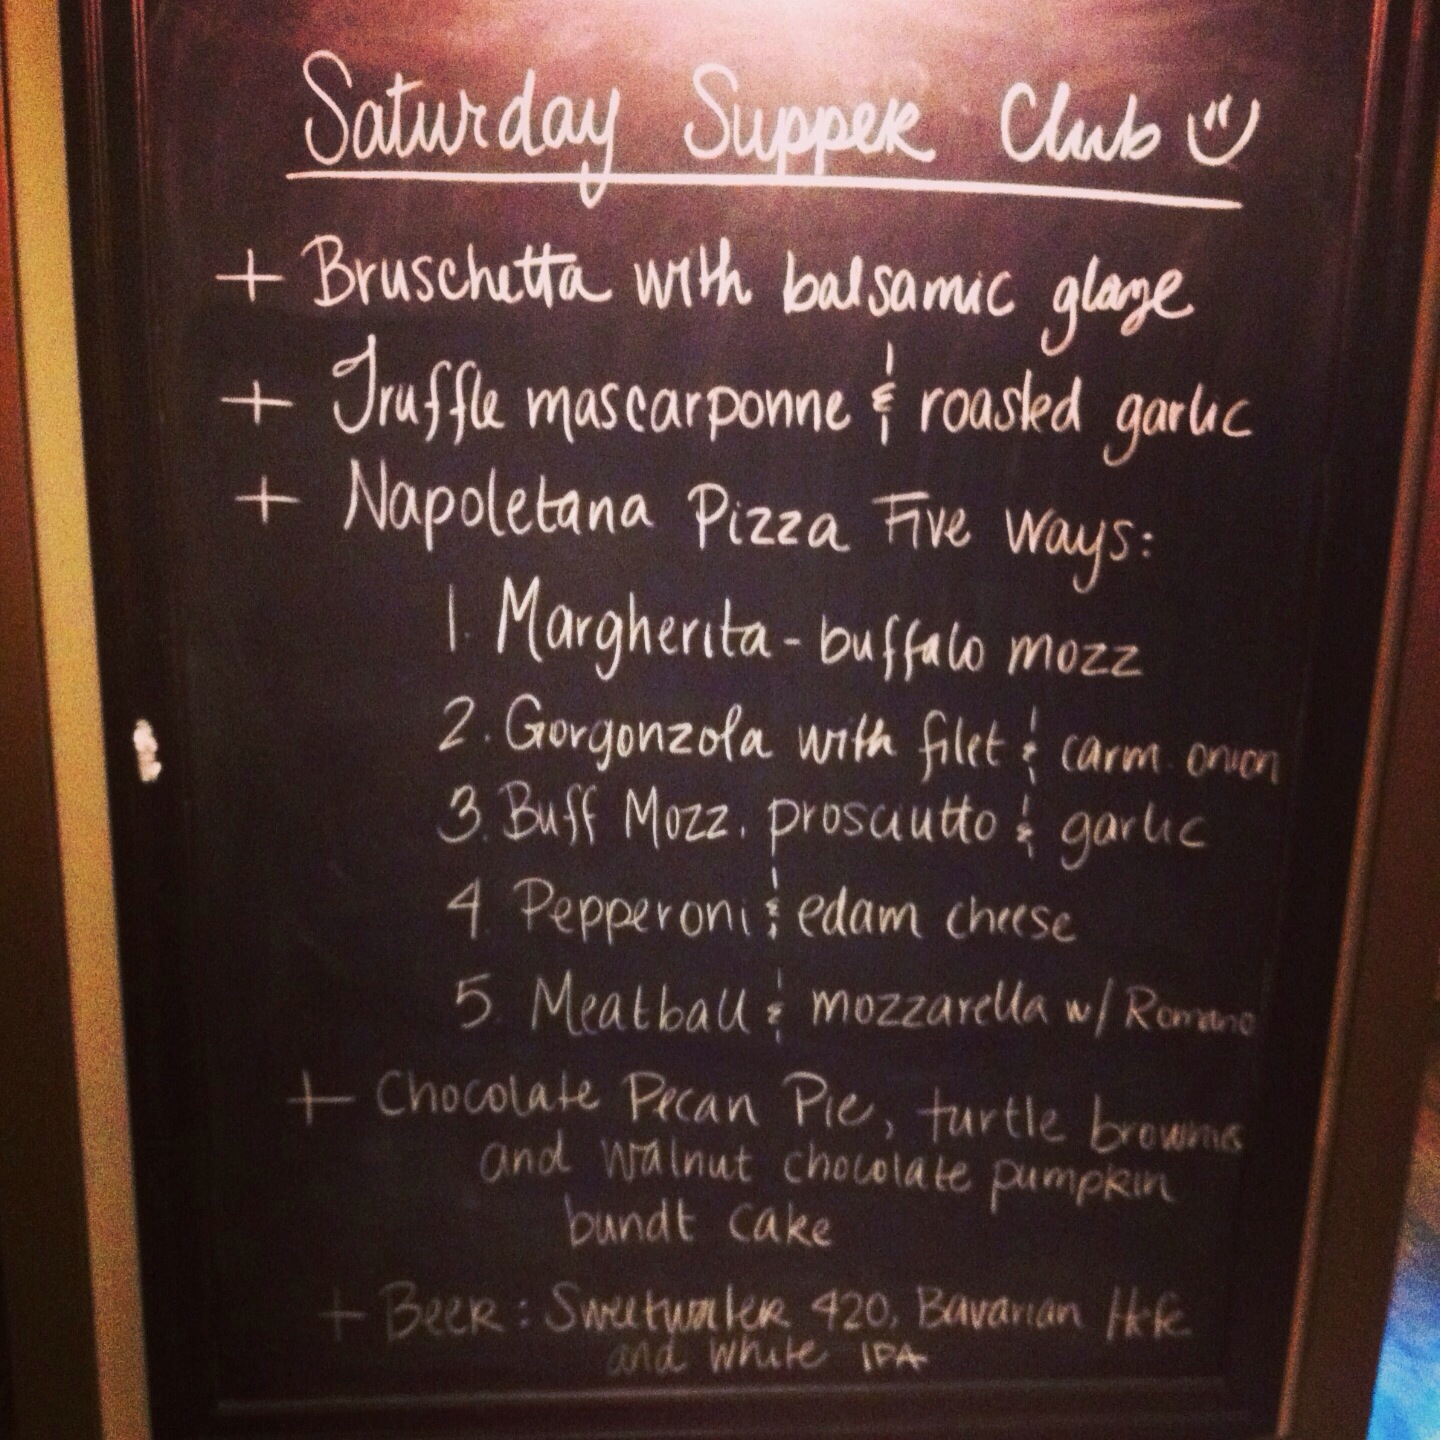 Saturday Supper Club
+ Bruschetta with balsamic glaze
+ Truffle mascarponne & roasted garlic
+ Napoletana Pizza Five Ways:
1. Margherita - buffalo mozz
2. Gorgonzola with filet & carm. onion
3. Buff Mozz. prosciutto & garlic
4 Pepperoni & edam cheese
5 Meatball & mozzarella w/ Romano
+ Chocolate Pecan Pie, turtle brownies
and walnut chocolate pumpkin
bundt cake
+ Beer: Sweetwater 420, Bavarian Hefe
and White IPA